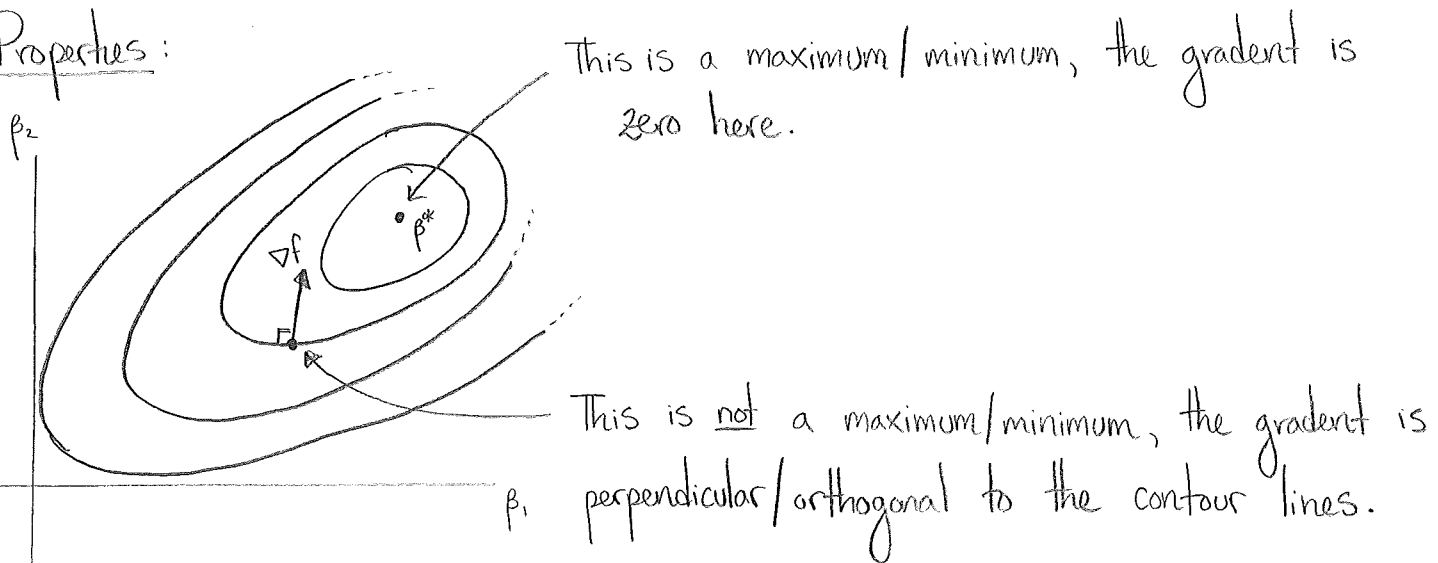 Properties:
This is a maximum/minimum, the gradent is
zero here.
β₂
β*
∇f
This is not a maximum/minimum, the gradent is
perpendicular/orthogonal to the contour lines.
β₁